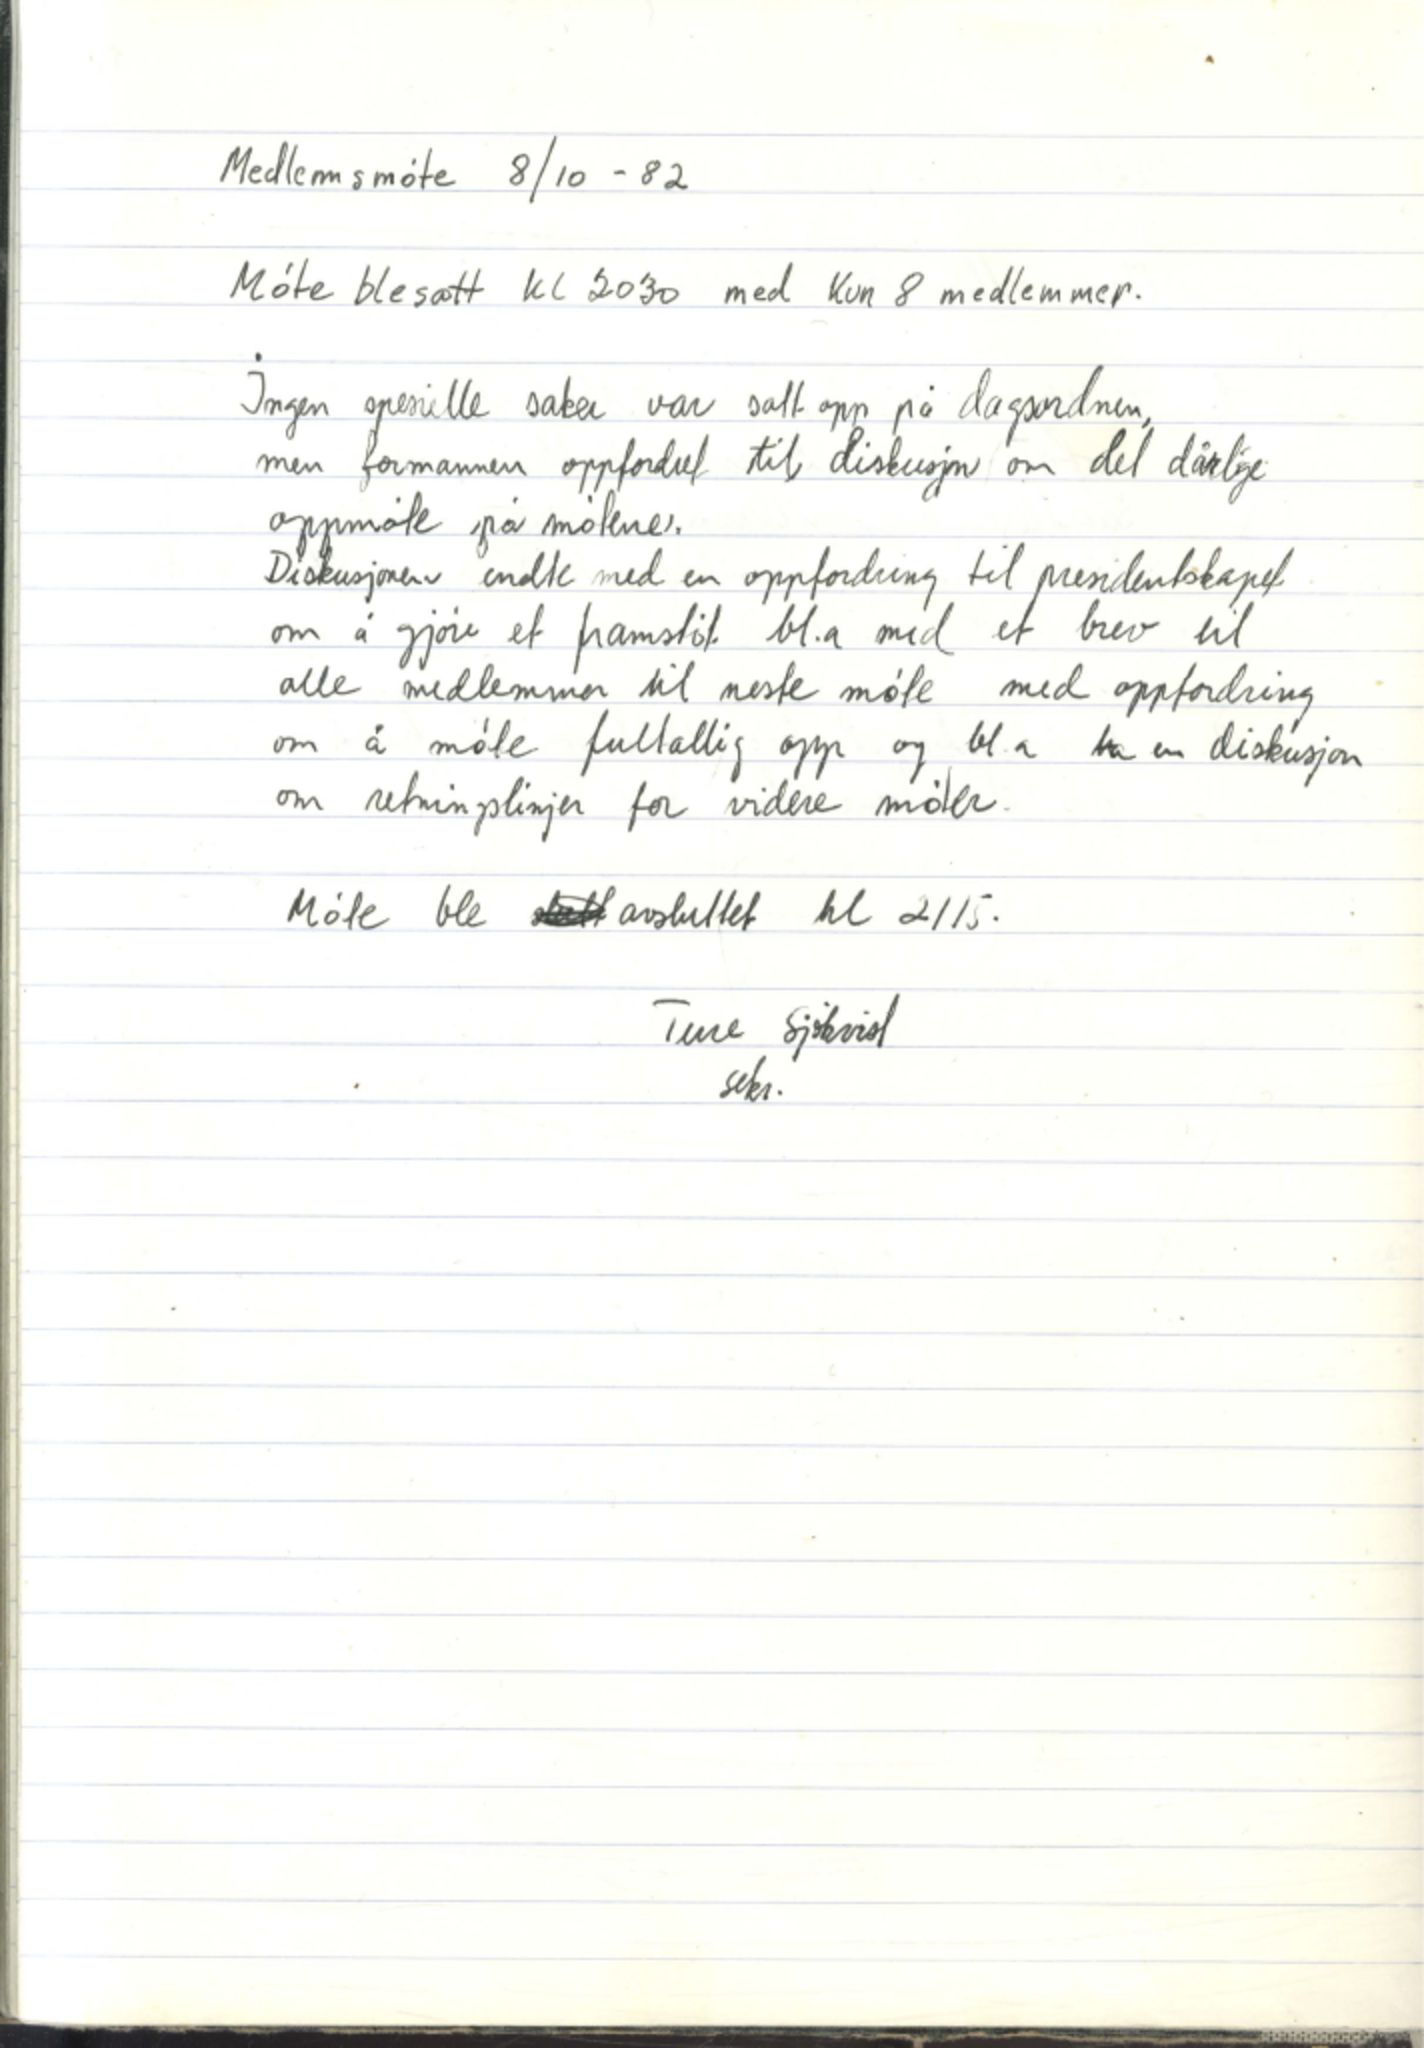 Medlemsmöte 8/10 - 82
Möte ble satt kl 2030 med kun 8 medlemmer.
Ingen spesielle saker var satt opp på dagsordnen,
men formannen oppfordret til diskusjon om det dårlige
oppmöte på mötene.
Diskusjonen endte med en oppfordring til presidentskapet
om å gjöre et framstöt bl.a med et brev til
alle medlemmer til neste möte med oppfordring
om å möte fulltallig opp og bl.a ha en diskusjon
om retningslinjer for videre möter.
Möte ble avsluttet kl 2115.
Ture Sjökvist
sekr.